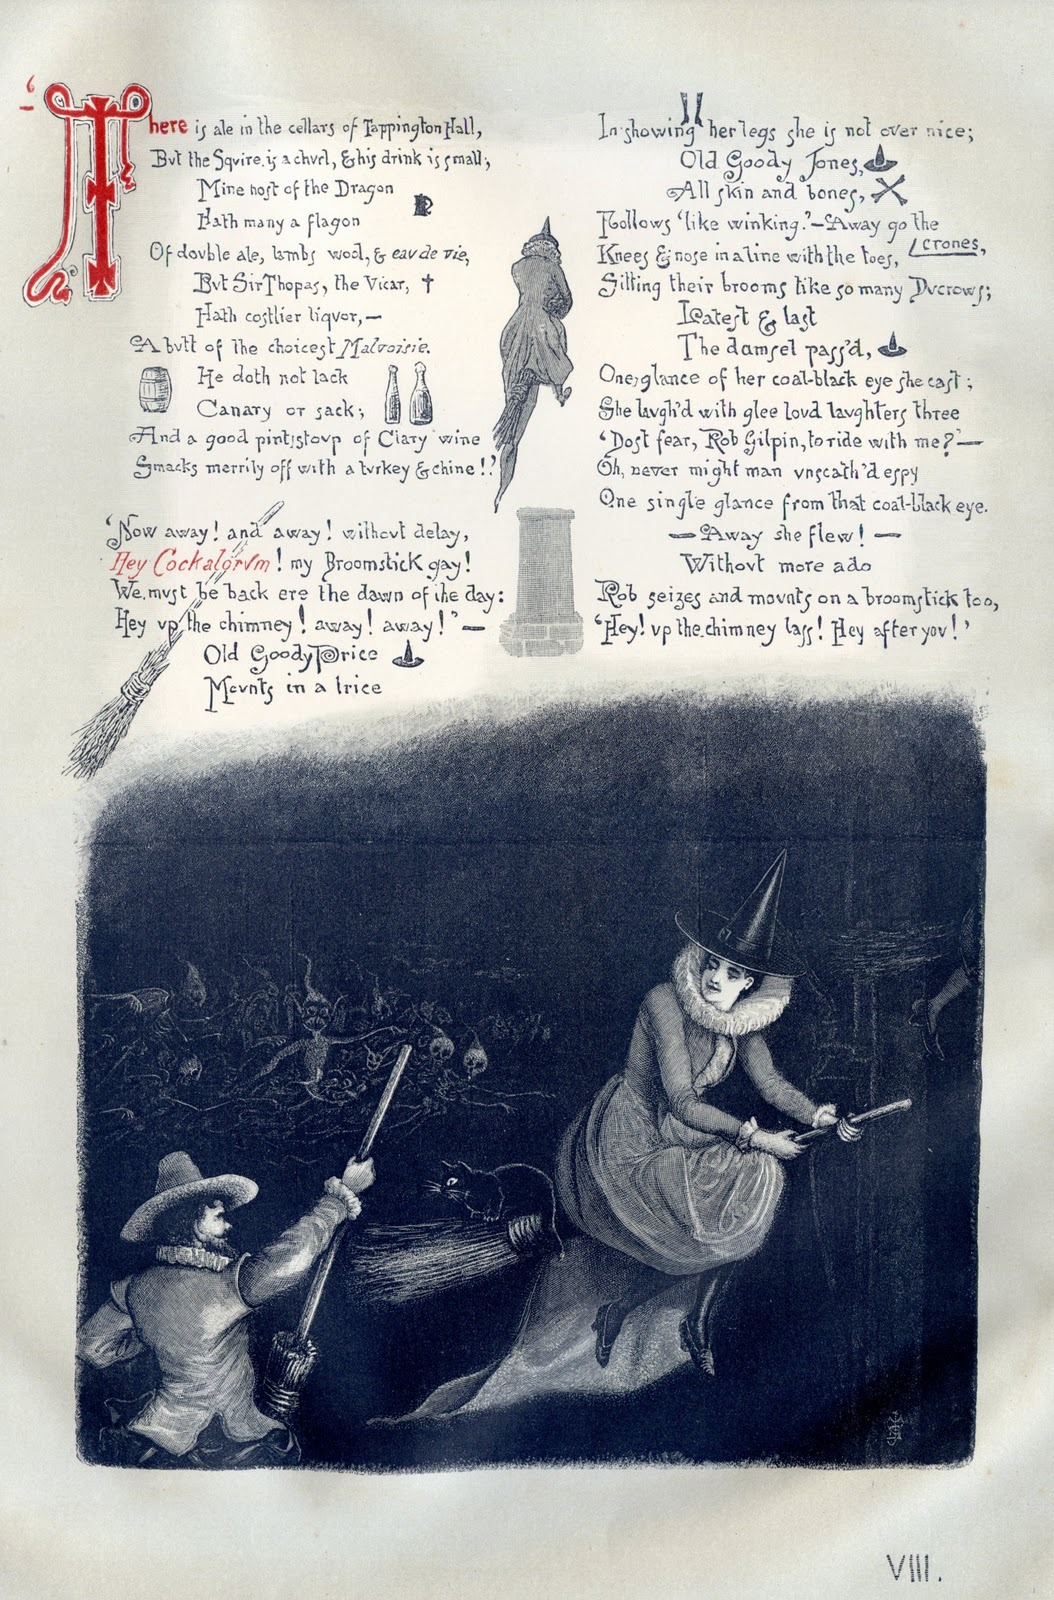 ‘There is ale in the cellars of Tappington Hall,
Bvt the Sqvire, is a chvrl, & his drink is small;
Mine host of the Dragon
Hath many a flagon
Of dovble ale, lambs wool, & eav de vie,
Bvt Sir Thopas, the Vicar,
Hath costlier liqvor,—
A bvtt of the choicest Malvoisie.
He doth not lack
Canary or sack;
And a good pint stovp of Clary wine
Smacks merrily off with a tvrkey & chine!’
‘Now away! and away! withovt delay,
Hey Cockalorvm! my Broomstick gay!
We mvst be back ere the dawn of the day:
Hey vp the chimney! away! away!”—
Old Goody Price
Movnts in a trice
In showing her legs she is not over nice;
Old Goody Jones,
All skin and bones,
Follows ‘like winking.’—Away go the
crones,
Knees & nose in a line with the toes,
Sitting their brooms like so many Dvcrows;
Latest & last
The damsel pass'd,
One glance of her coal-black eye she cast;
She lavgh'd with glee lovd lavghters three
‘Dost fear, Rob Gilpin, to ride with me?’—
Oh, never might man vnscath'd espy
One single glance from that coal-black eye.
—Away she flew!—
Withovt more ado
Rob seizes and movnts on a broomstick too,
‘Hey! vp the chimney lass! Hey after yov!’
VIII.